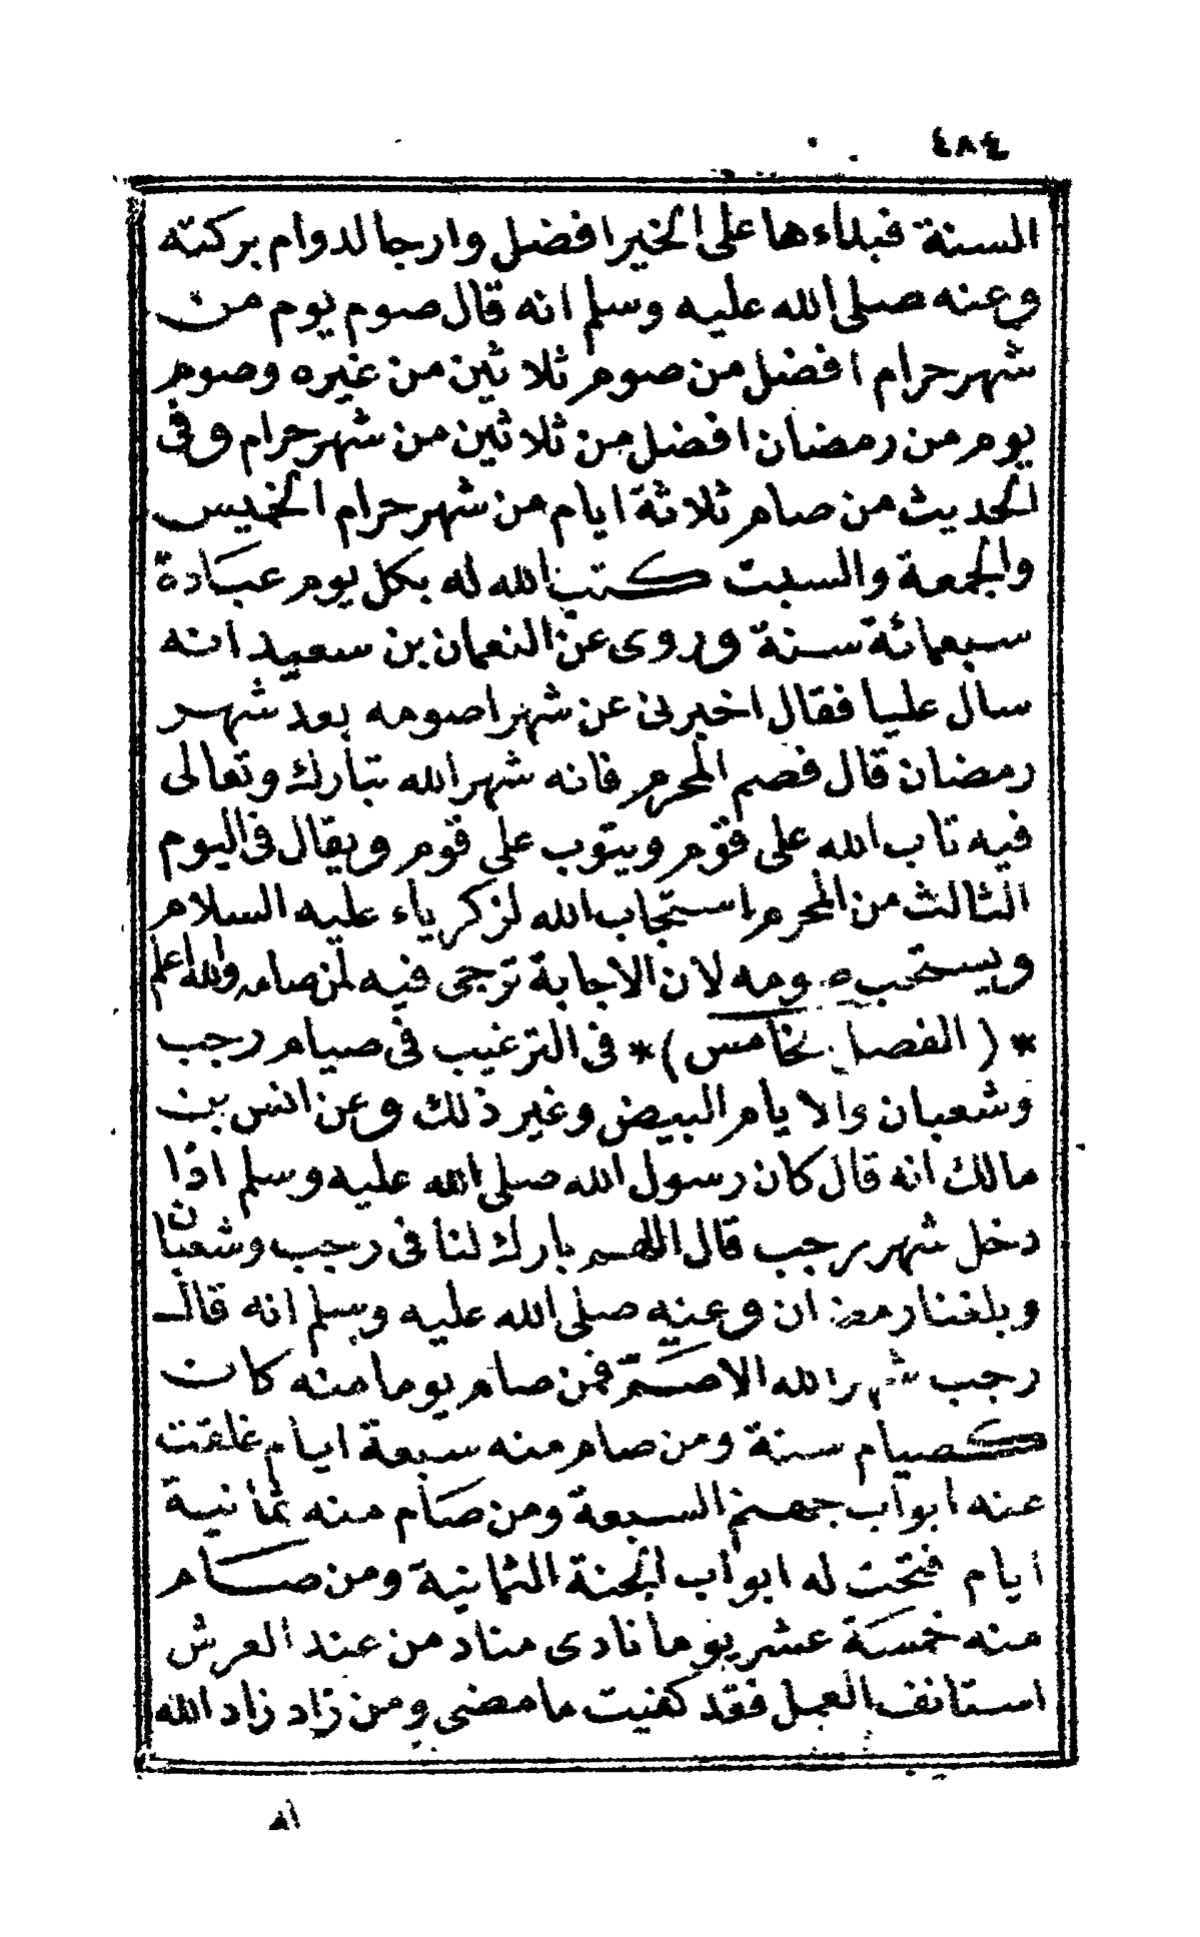 ٤٨٤
السنة فبداءها على الخير افضل وارجا لدوام بركته
وعنه صلى الله عليه وسلم انه قال صوم يوم من
شهر حرام افضل من صوم ثلاثين من غيره وصوم
يوم من رمضان افضل من ثلاثين من شهر حرام وفى
الحديث من صام ثلاثة ايام من شهر حرام الخميس
والجمعة والسبت كتب الله له بكل يوم عبادة
سبعمائة سنة وروى عن النعمان بن سعيد انه
سال عليا فقال اخبرنى عن شهر اصومه بعد شهر
رمضان قال فصم المحرم فانه شهر الله تبارك وتعالى
فيه تاب الله على قوم ويتوب على قوم ويقال فى اليوم
الثالث من المحرم استجاب الله لزكرياء عليه السلام
ويستحب صومه لان الاجابة ترجى فيه لمن صامه والله اعلم
*(الفصل الخامس)* فى الترغيب فى صيام رجب
وشعبان والايام البيض وغير ذلك وعن انس بن
مالك انه قال كان رسول الله صلى الله عليه وسلم اذا
دخل شهر رجب قال اللهم بارك لنا فى رجب وشعبان
وبلغنا رمضان وعنه صلى الله عليه وسلم انه قال
رجب شهر الله الاصم فمن صام يوما منه كان
كصيام سنة ومن صام منه سبعة ايام غلقت
عنه ابواب جهنم السبعة ومن صام منه ثمانية
ايام فتحت له ابواب الجنة الثمانية ومن صام
منه خمسة عشر يوما نادى مناد من عند العرش
استانف العمل فقد كفيت ما مضى ومن زاد زاد الله